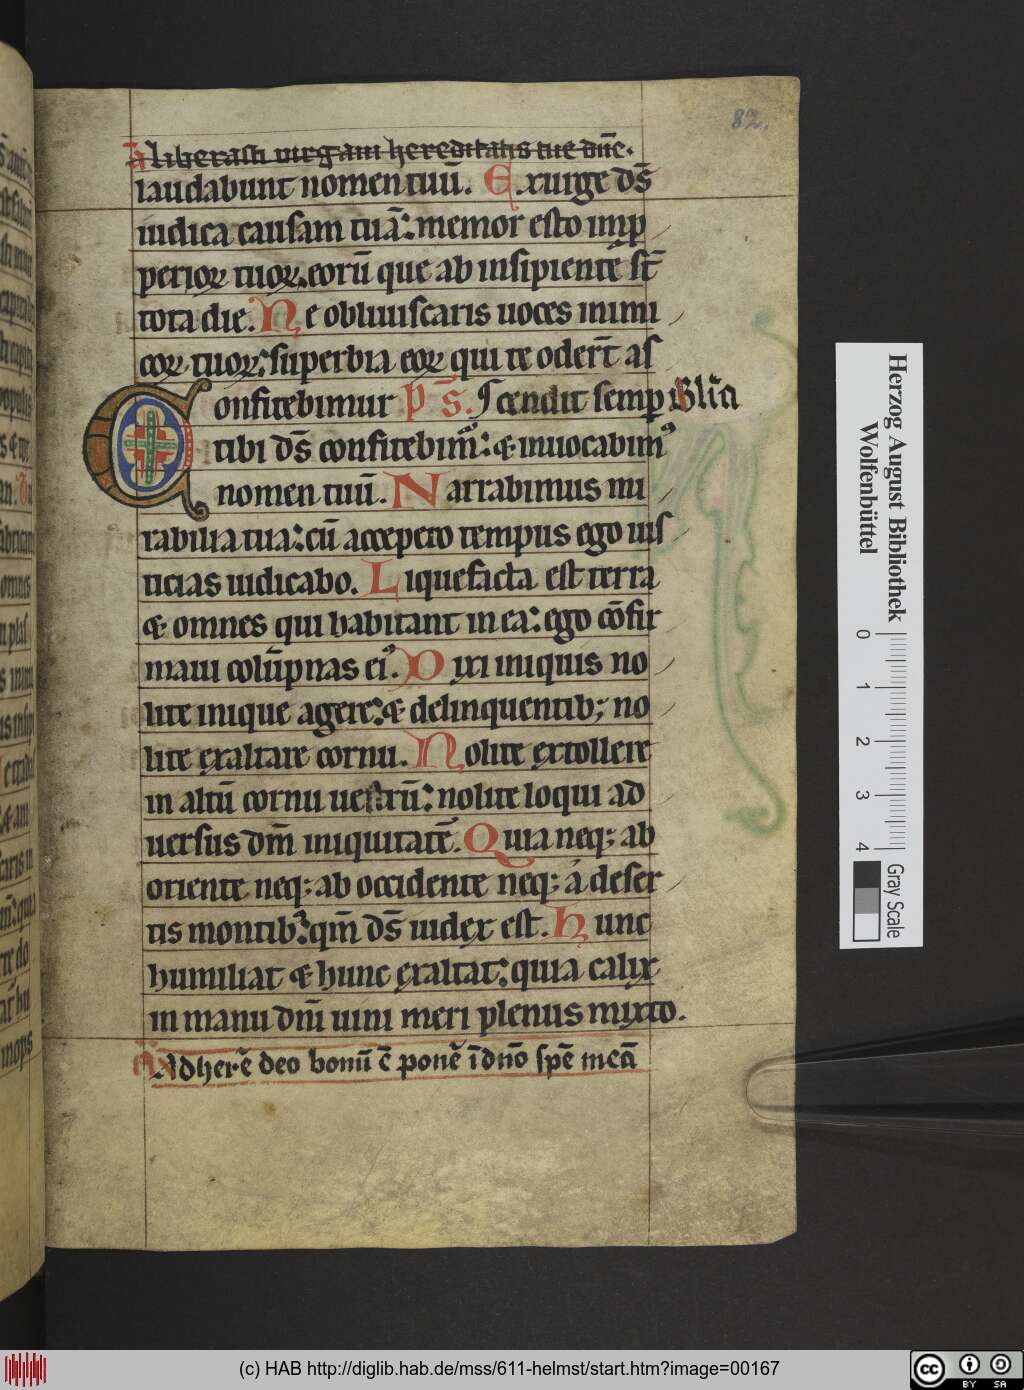 82.
a liberasti uirgam hereditatis tue dn̄e.
laudabunt nomen tuū. Exurge ds̄
iudica causam tuā: memor esto imp
perioꝝ tuoꝝ. eorū que ab insipiente st̄
tota die. Ne obliuiscaris uoces inimi
coꝝ tuoꝝ: superbia eoꝝ qui te odert̄ as
Confitebimur ps̄. cendit semp
tibi ds̄ confitebim᷒: & inuocabim᷒
nomen tuū. Narrabimus mi
rabilia tua: cū accepero tempus ego ius
ticias iudicabo. Liquefacta est terra
& omnes qui habitant in ea: ego cōfir
maui colūpnas ei᷒. Dixi iniquis no
lite inique agere: & delinquentib; no
lite exaltare cornu. Nolite extollere
in altū cornu uestrū: nolite loqui ad
uersus dm̄ iniquitatē. Quia neq; ab
oriente neq; ab occidente neq; a deser
tis montib᷒: qm̄ ds̄ iudex est. Hunc
humiliat & hunc exaltat: quia calix
in manu dni uini meri plenus mixto.
a Adherē deo bonū ē ponē ī dn̄o spē meā
Herzog August Bibliothek
Wolfenbüttel
0 1 2 3 4
Gray Scale
(c) HAB http://diglib.hab.de/mss/611-helmst/start.htm?image=00167
cc BY SA